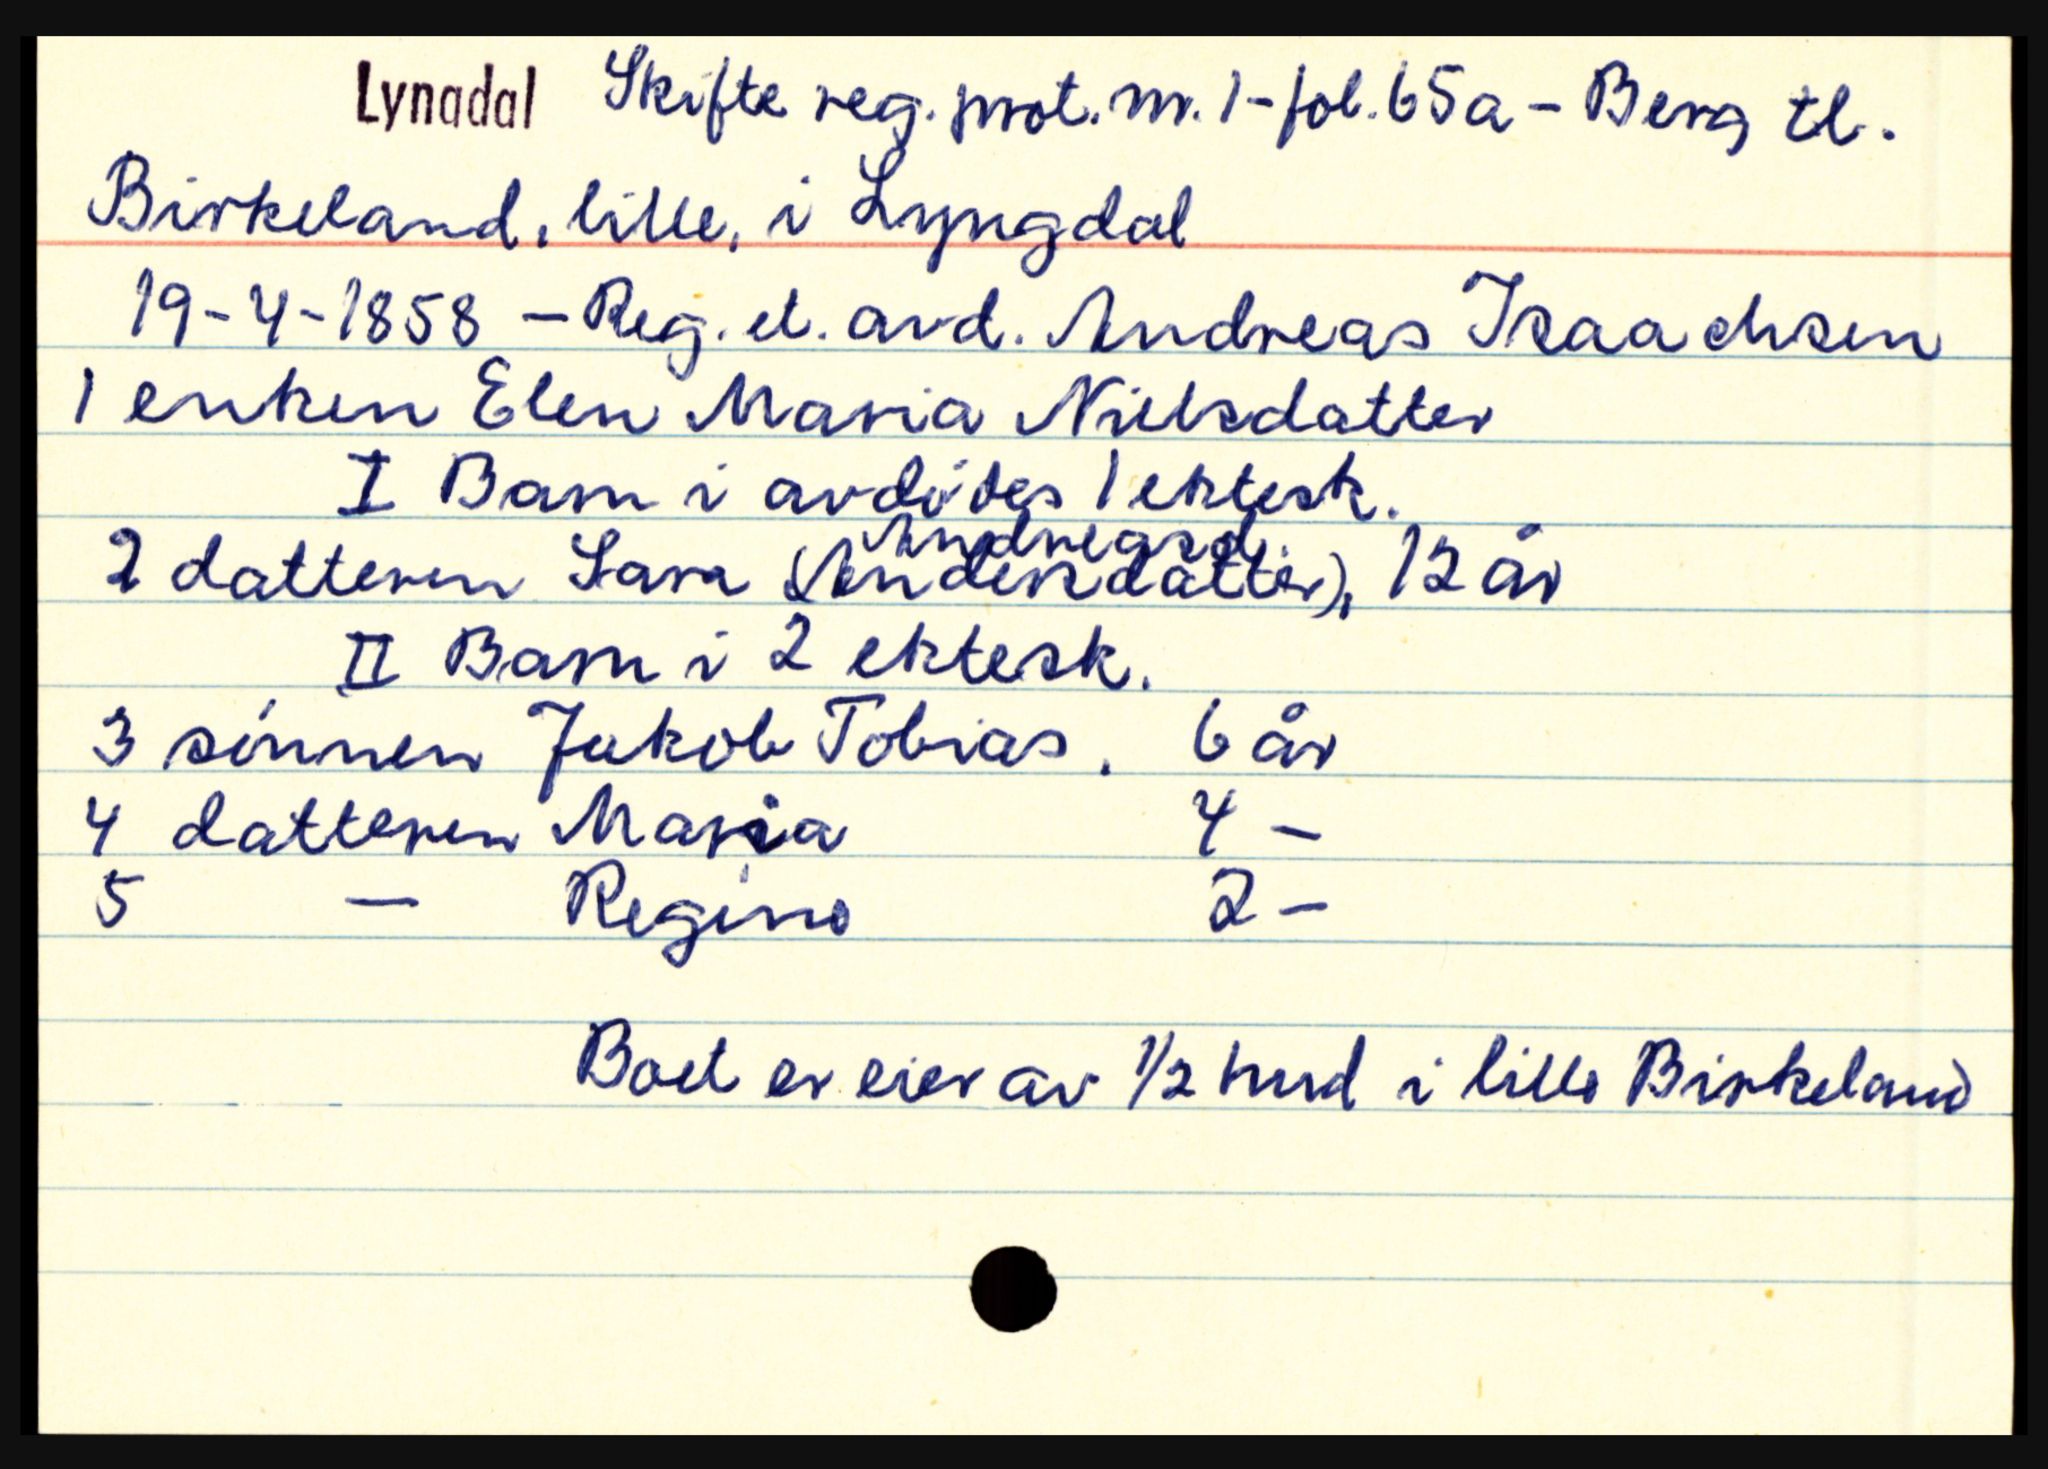 Lyngdal Skifte reg. prot. nr. 1 - fol. 65a - Berg tl.
Birkeland, lille, i Lyngdal
19-4-1858 - Reg. et. avd. Andreas Isaachsen
1 enken Elen Maria Nielsdatter
I Barn i avdödes 1 ektesk.
Andreasd.
2 datteren Sara (Andersdatter), 12 år
II Barn i 2 ektesk.
3 sönnen Jakob Tobias. 6 år
4 datteren Maria 4 -
5 - Regine 2 -
Boet er eier av 1/2 hud i lille Birkeland